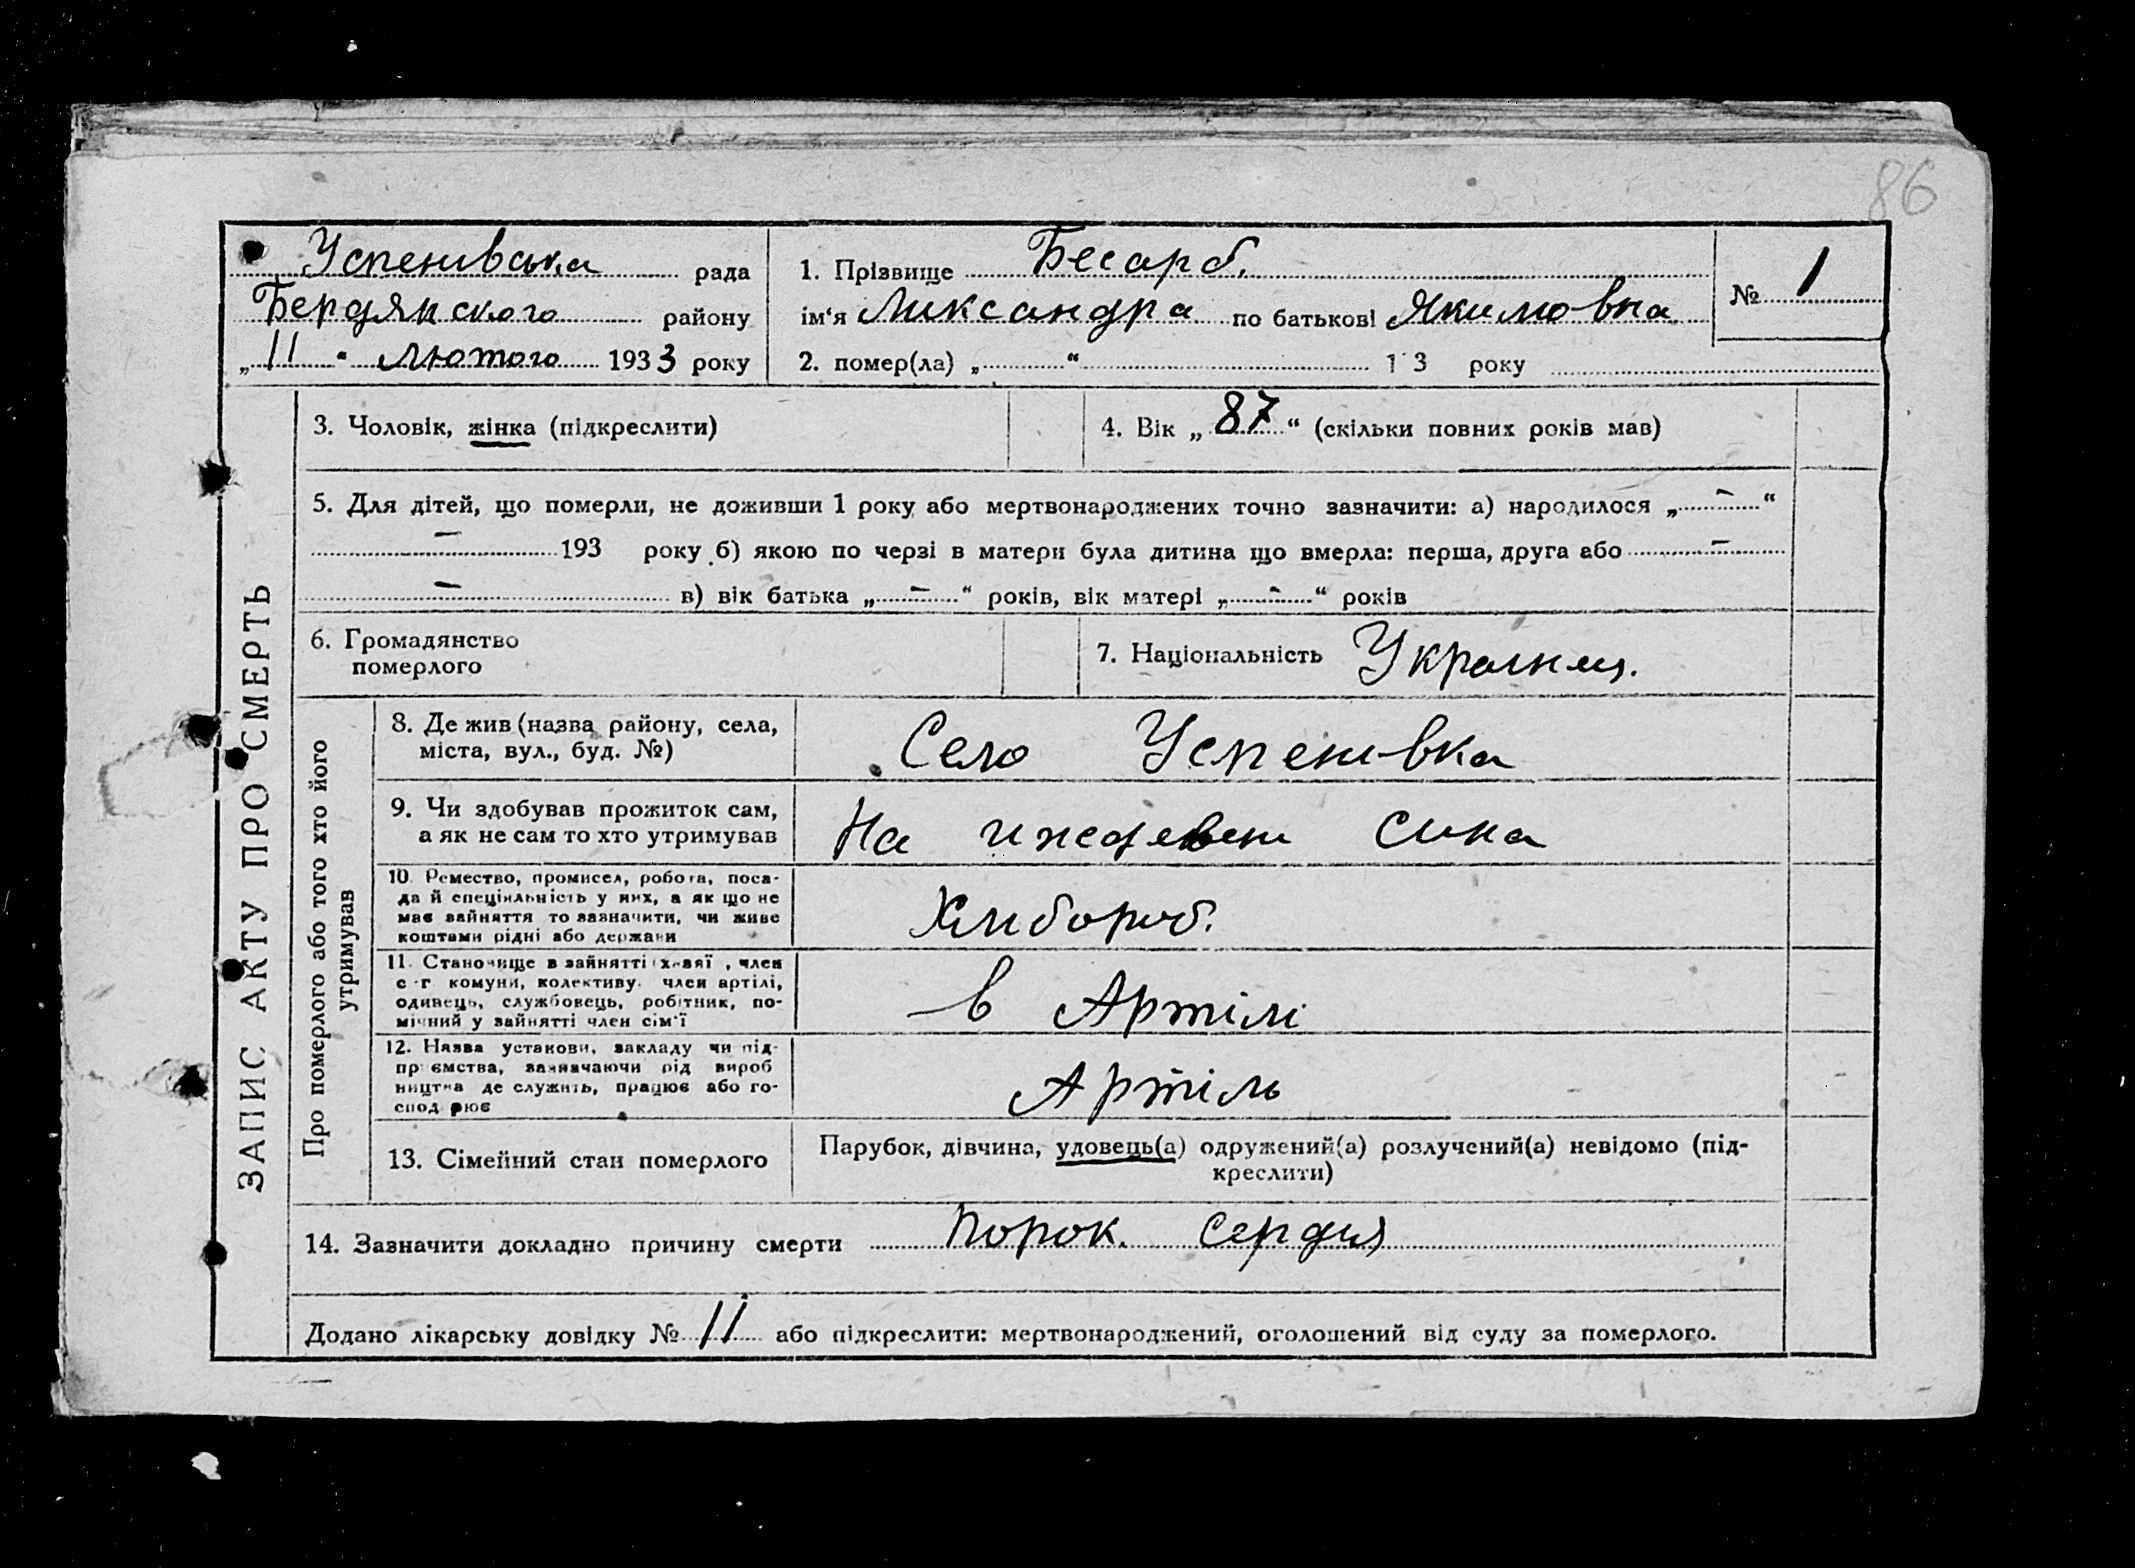 86
Успенівська рада
Бердянского району
„11" лютого 1933 року
1. Прізвище Бесараб.
ім'я Лиександра по батькові Якимовна
2. помер(ла) „ " 1 3 року
№ 1
ЗАПИС АКТУ ПРО СМЕРТЬ
3. Чоловік, жінка (підкреслити)
4. Вік „87" (скільки повних років мав)
5. Для дітей, що померли, не доживши 1 року або мертвонароджених точно зазначити: а) народилося „–"
– 193 року б) якою по черзі в матери була дитина що вмерла: перша, друга або –
– в) вік батька „–" років, вік матері „–" років
6. Громадянство
померлого
7. Національність Украинец.
Про померлого або того хто його
утримував
8. Де жив (назва району, села,
міста, вул., буд. №)
Село Успенивка
9. Чи здобував прожиток сам,
а як не сам то хто утримував
На сина
10. Ремество, промисел, робота, поса-
да й спеціяльність у них, а як що не
має зайняття то зазначити, чи живе
коштами рідні або держави
Хлибороб.
11. Становище в зайнятті хазяї , член
с-г комуни, колективу, член артілі,
одинець, службовець, робітник, по-
мічний у зайнятті член сім'ї
в Артілі
12. Назва установи, закладу чи під-
приємства, зазначаючи рід вироб
ництва де служить, працює або го-
спод рює
Артіль
13. Сімейний стан померлого
Парубок, дівчина, удовець(а) одружений(а) розлучений(а) невідомо (під-
креслити)
14. Зазначити докладно причину смерти Порок. сердия
Додано лікарську довідку № 11 або підкреслити: мертвонароджений, оголошений від суду за померлого.